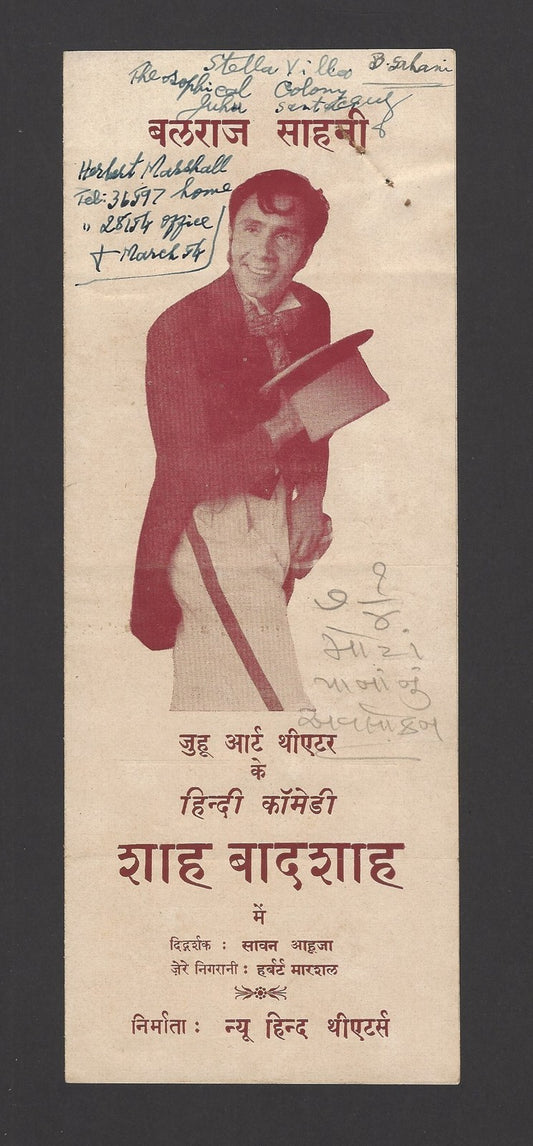 Stella Villa
B. Sahani
Theosophical Colony
Juhu Santacruz
बलराज साहनी
Herbert Marshall
Tel: 36597 home
" 28154 office
March 54
૭ ૧/૪
મોટાં
પાનાંનું
અવલોકન
जुहू आर्ट थीएटर
के
हिन्दी कॉमेडी
शाह बादशाह
में
दिग्दर्शक : सावन आहूजा
ज़ेरे निगरानी : हर्बर्ट मारशल
निर्माता : न्यू हिन्द थीएटर्स